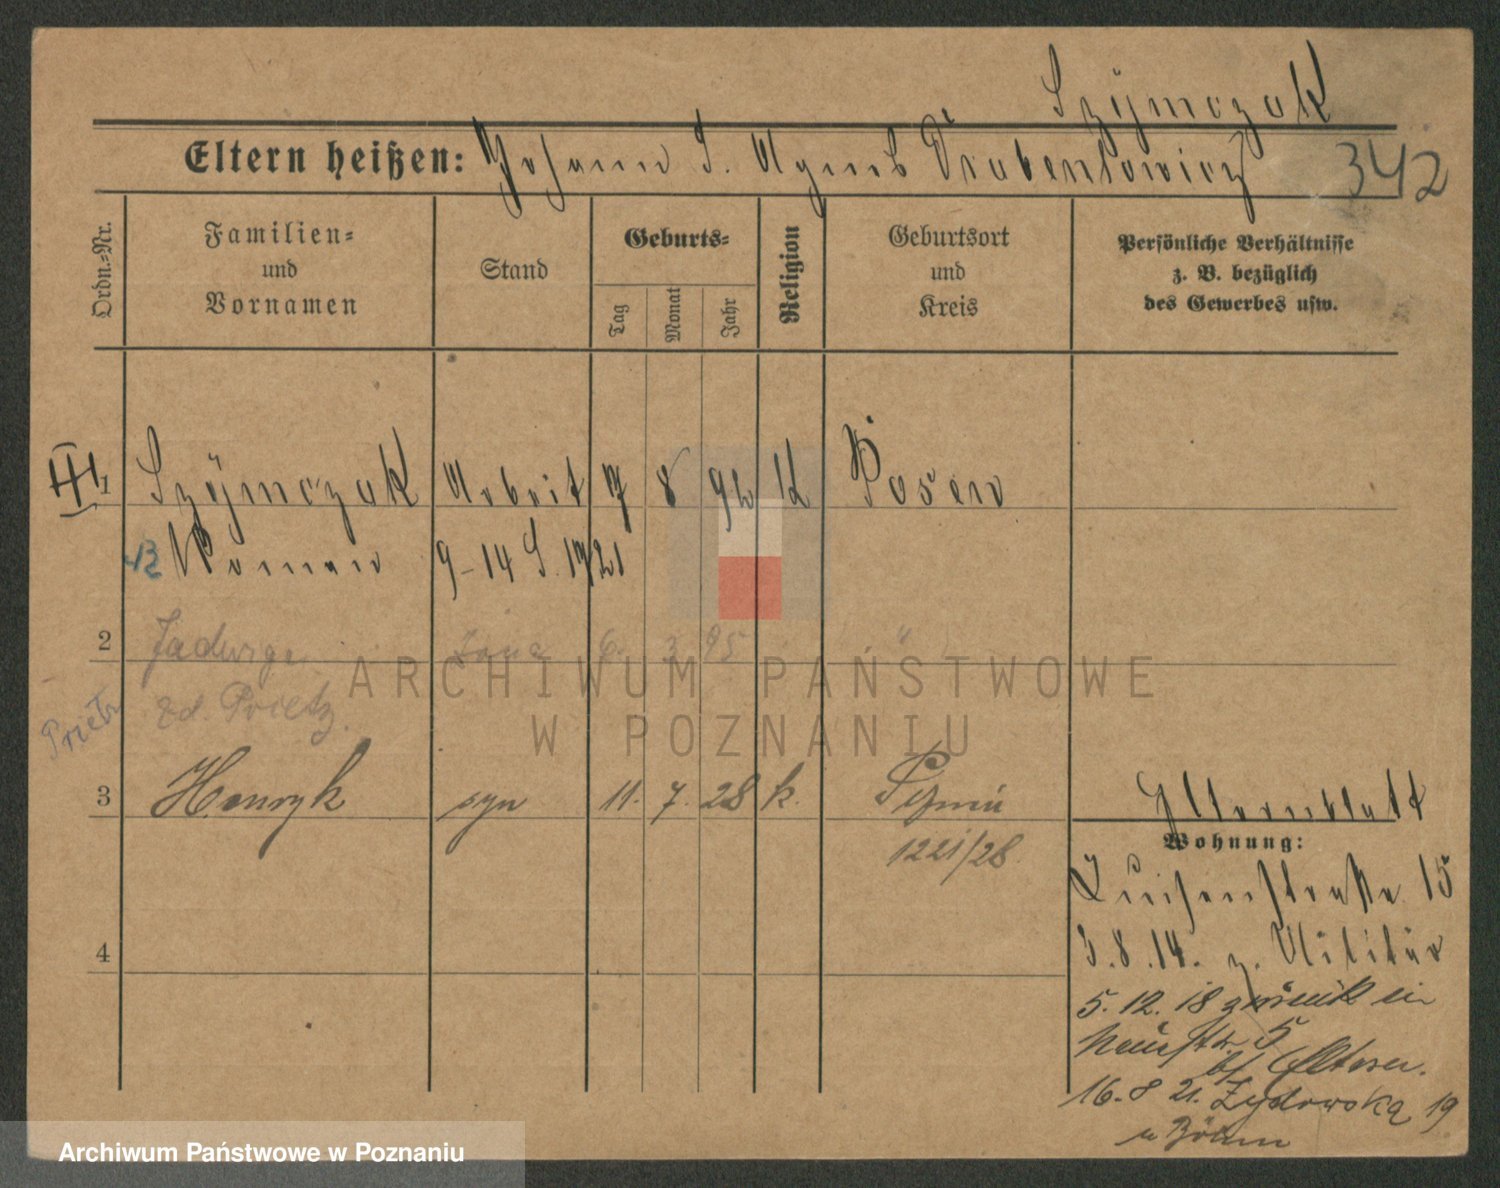 Szymczak
Eltern heißen: Johann S. Agnes Drabentowicz
342
Ordn.-Nr.
Familien-
und
Vornamen
Stand
Geburts-
Tag
Monat
Jahr
Religion
Geburtsort
und
Kreis
Persönliche Verhältnisse
z. B. bezüglich
des Gewerbes usw.
III
1 Szymczak Arbeit 7 8 92 k Posen
Roman 9-14 S. 1921
2 Jadwiga żona 6. 3 95 "
zd. Prietz.
Prietz
3 Henryk syn 11. 7. 28 k. Poznań
1221/28
4
Elternblatt
Wohnung:
Luisenstraße 15
3.8.14. z. Militär
5.12.18 zurück in
Neuestr. 5
b/ Eltern.
16.8 21. Żydowska 19
u Böhm
ARCHIWUM PAŃSTWOWE
W POZNANIU
Archiwum Państwowe w Poznaniu